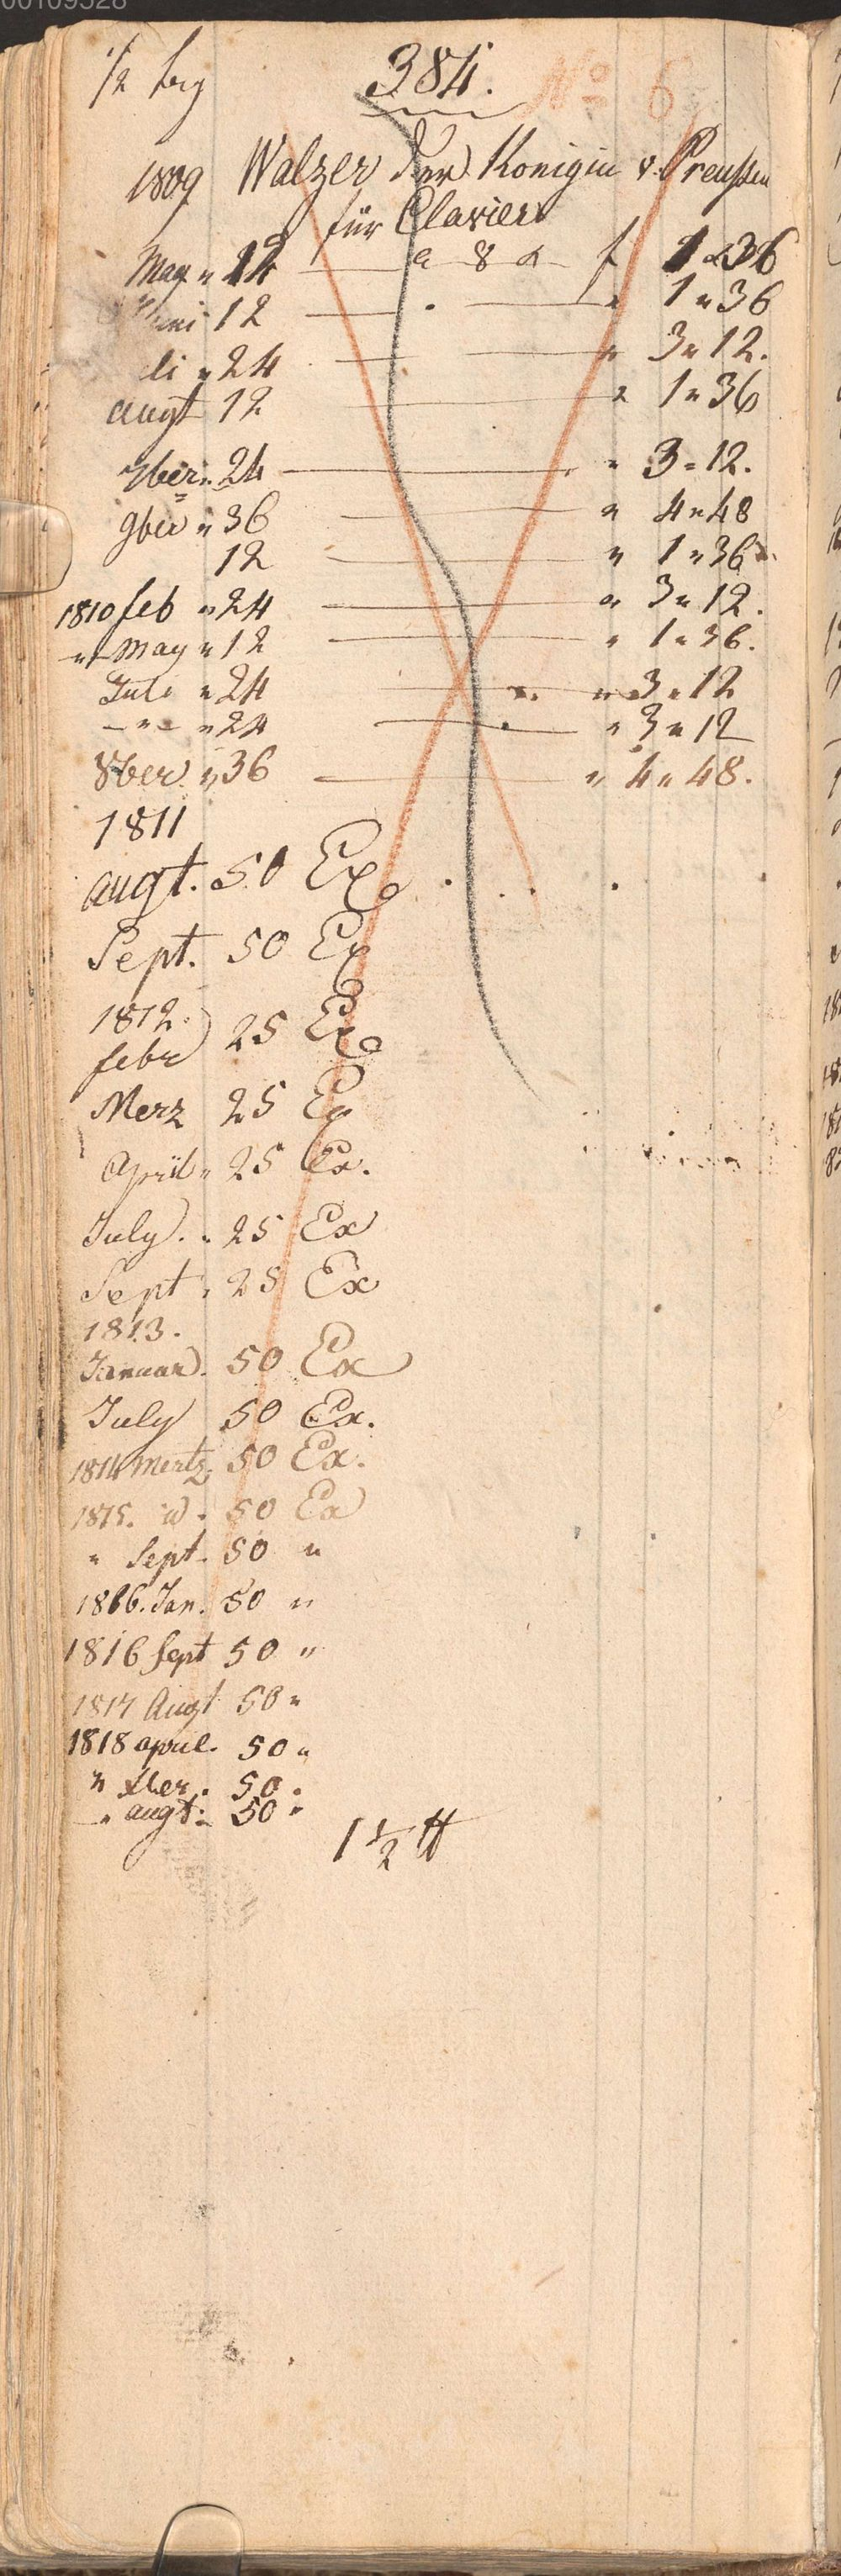 00109528
1/2 bog 384. No 6
1809 Walzer der Konigin v. Preußen
für Clavier
May " 12 — a 8 x — f 1 " 36
Juni 12 — " 1 " 36
li " 24 — " 3 " 12.
augt 12 — " 1 " 36
7ber " 24 — " 3 " 12.
9ber " 36 — " 4 " 48
12 — " 1 " 36
1810 feb " 24 — " 3 " 12.
" May " 12 — " 1 " 36.
Juli " 24 — " 3 " 12
— " — " 24 — " 3 " 12
8ber " 36 — " 4 " 48.
1811
augt. 50 Ex
Sept. 50 Ex
1812.
febr 25 Ex
Merz 25 Ex
April " 25 Ex.
July. " 25 Ex
Sept " 25 Ex
1813.
Januar. 50 Ex
July 50 Ex.
1814 Mertz. 50 Ex.
1815. d. 50 Ex
" Sept. 50 "
1816. Jan. 50 "
1816 Sept 50 "
1817 Augt 50 "
1818 april. 50 "
" xber. 50 "
" augt. 50 "
1 1/2 ft